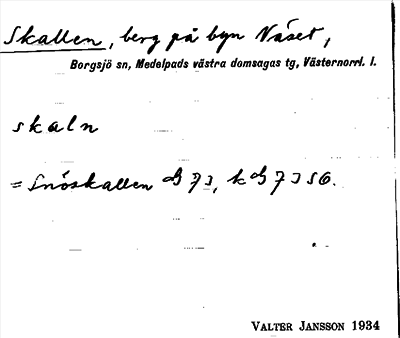 Skallen, berg på byn Väset,
Borgsjö sn, Medelpads västra domsagas tg, Västernorrl. l.
skaln
= Snöskallen
VALTER JANSSON 1934